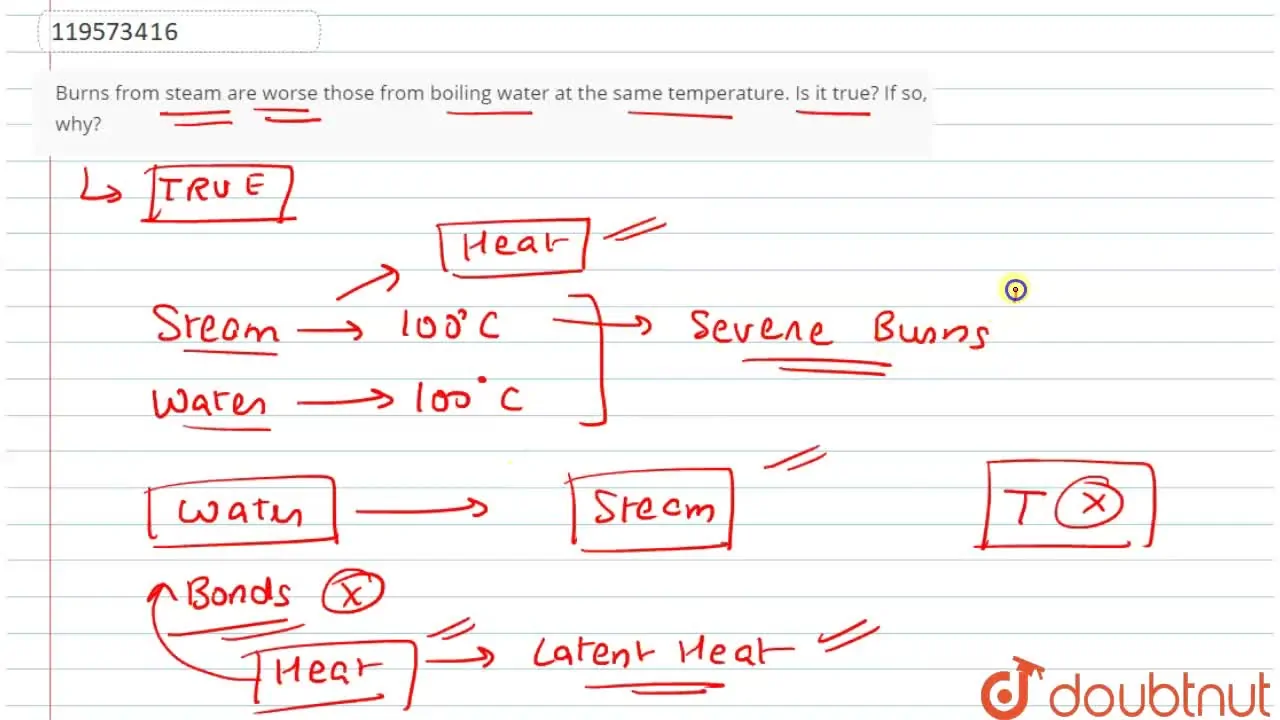 119573416
Burns from steam are worse those from boiling water at the same temperature. Is it true? If so,
why?
TRUE
Heat
Steam → 100°C → Severe Burns
Water → 100°C
Water → Steam
T X
Bonds X
Heat → Latent Heat
doubtnut